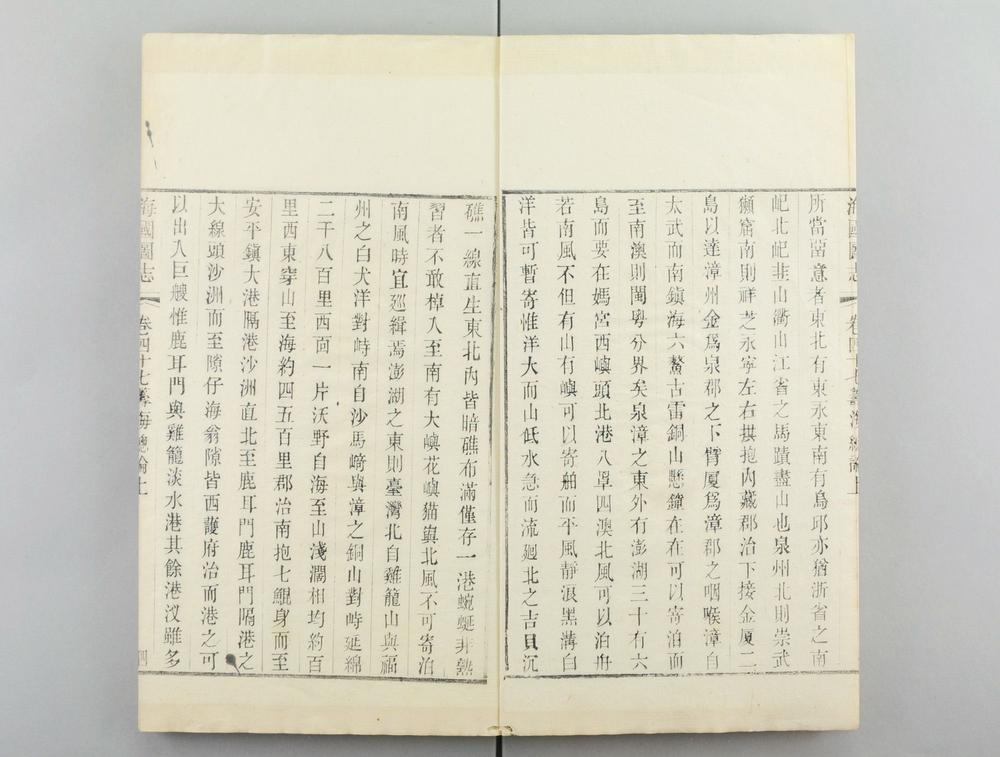 海國圖志 卷四十七 籌海總論上
所當留意者東北有東永東南有烏邱亦猶浙省之南
屺北屺韭山衢山江省之馬蹟盡山也泉州北則崇武
獺窟南則祥芝永寧左右拱抱內藏郡治下接金厦二
島以達漳州金爲泉郡之下臂厦爲漳郡之咽喉漳自
太武而南鎮海六鰲古雷銅山懸鐘在在可以寄泊而
至南澳則閩粵分界矣泉漳之東外有澎湖三十有六
島而要在媽宮西嶼頭北港八罩四澳北風可以泊舟
若南風不但有山有嶼可以寄舶而平風靜浪黑溝白
洋皆可暫寄惟洋大而山低水急而流廻北之吉貝沉
礁一線直生東北內皆暗礁布滿僅存一港蜿蜒非熟
習者不敢棹入至南有大嶼花嶼猫嶼北風不可寄泊
南風時宜廵緝焉澎湖之東則臺灣北自雞籠山與福
州之白犬洋對峙南自沙馬﨑與漳之銅山對峙延綿
二千八百里西面一片沃野自海至山淺濶相均約百
里西東穿山至海約四五百里郡治南抱七鯤身而至
安平鎮大港隔港沙洲直北至鹿耳門鹿耳門隔港之
大線頭沙洲而至隙仔海翁隙皆西護府治而港之可
以出入巨艘惟鹿耳門與雞籠淡水港其餘港汊雖多
海國圖志 卷四十七 籌海總論上 四